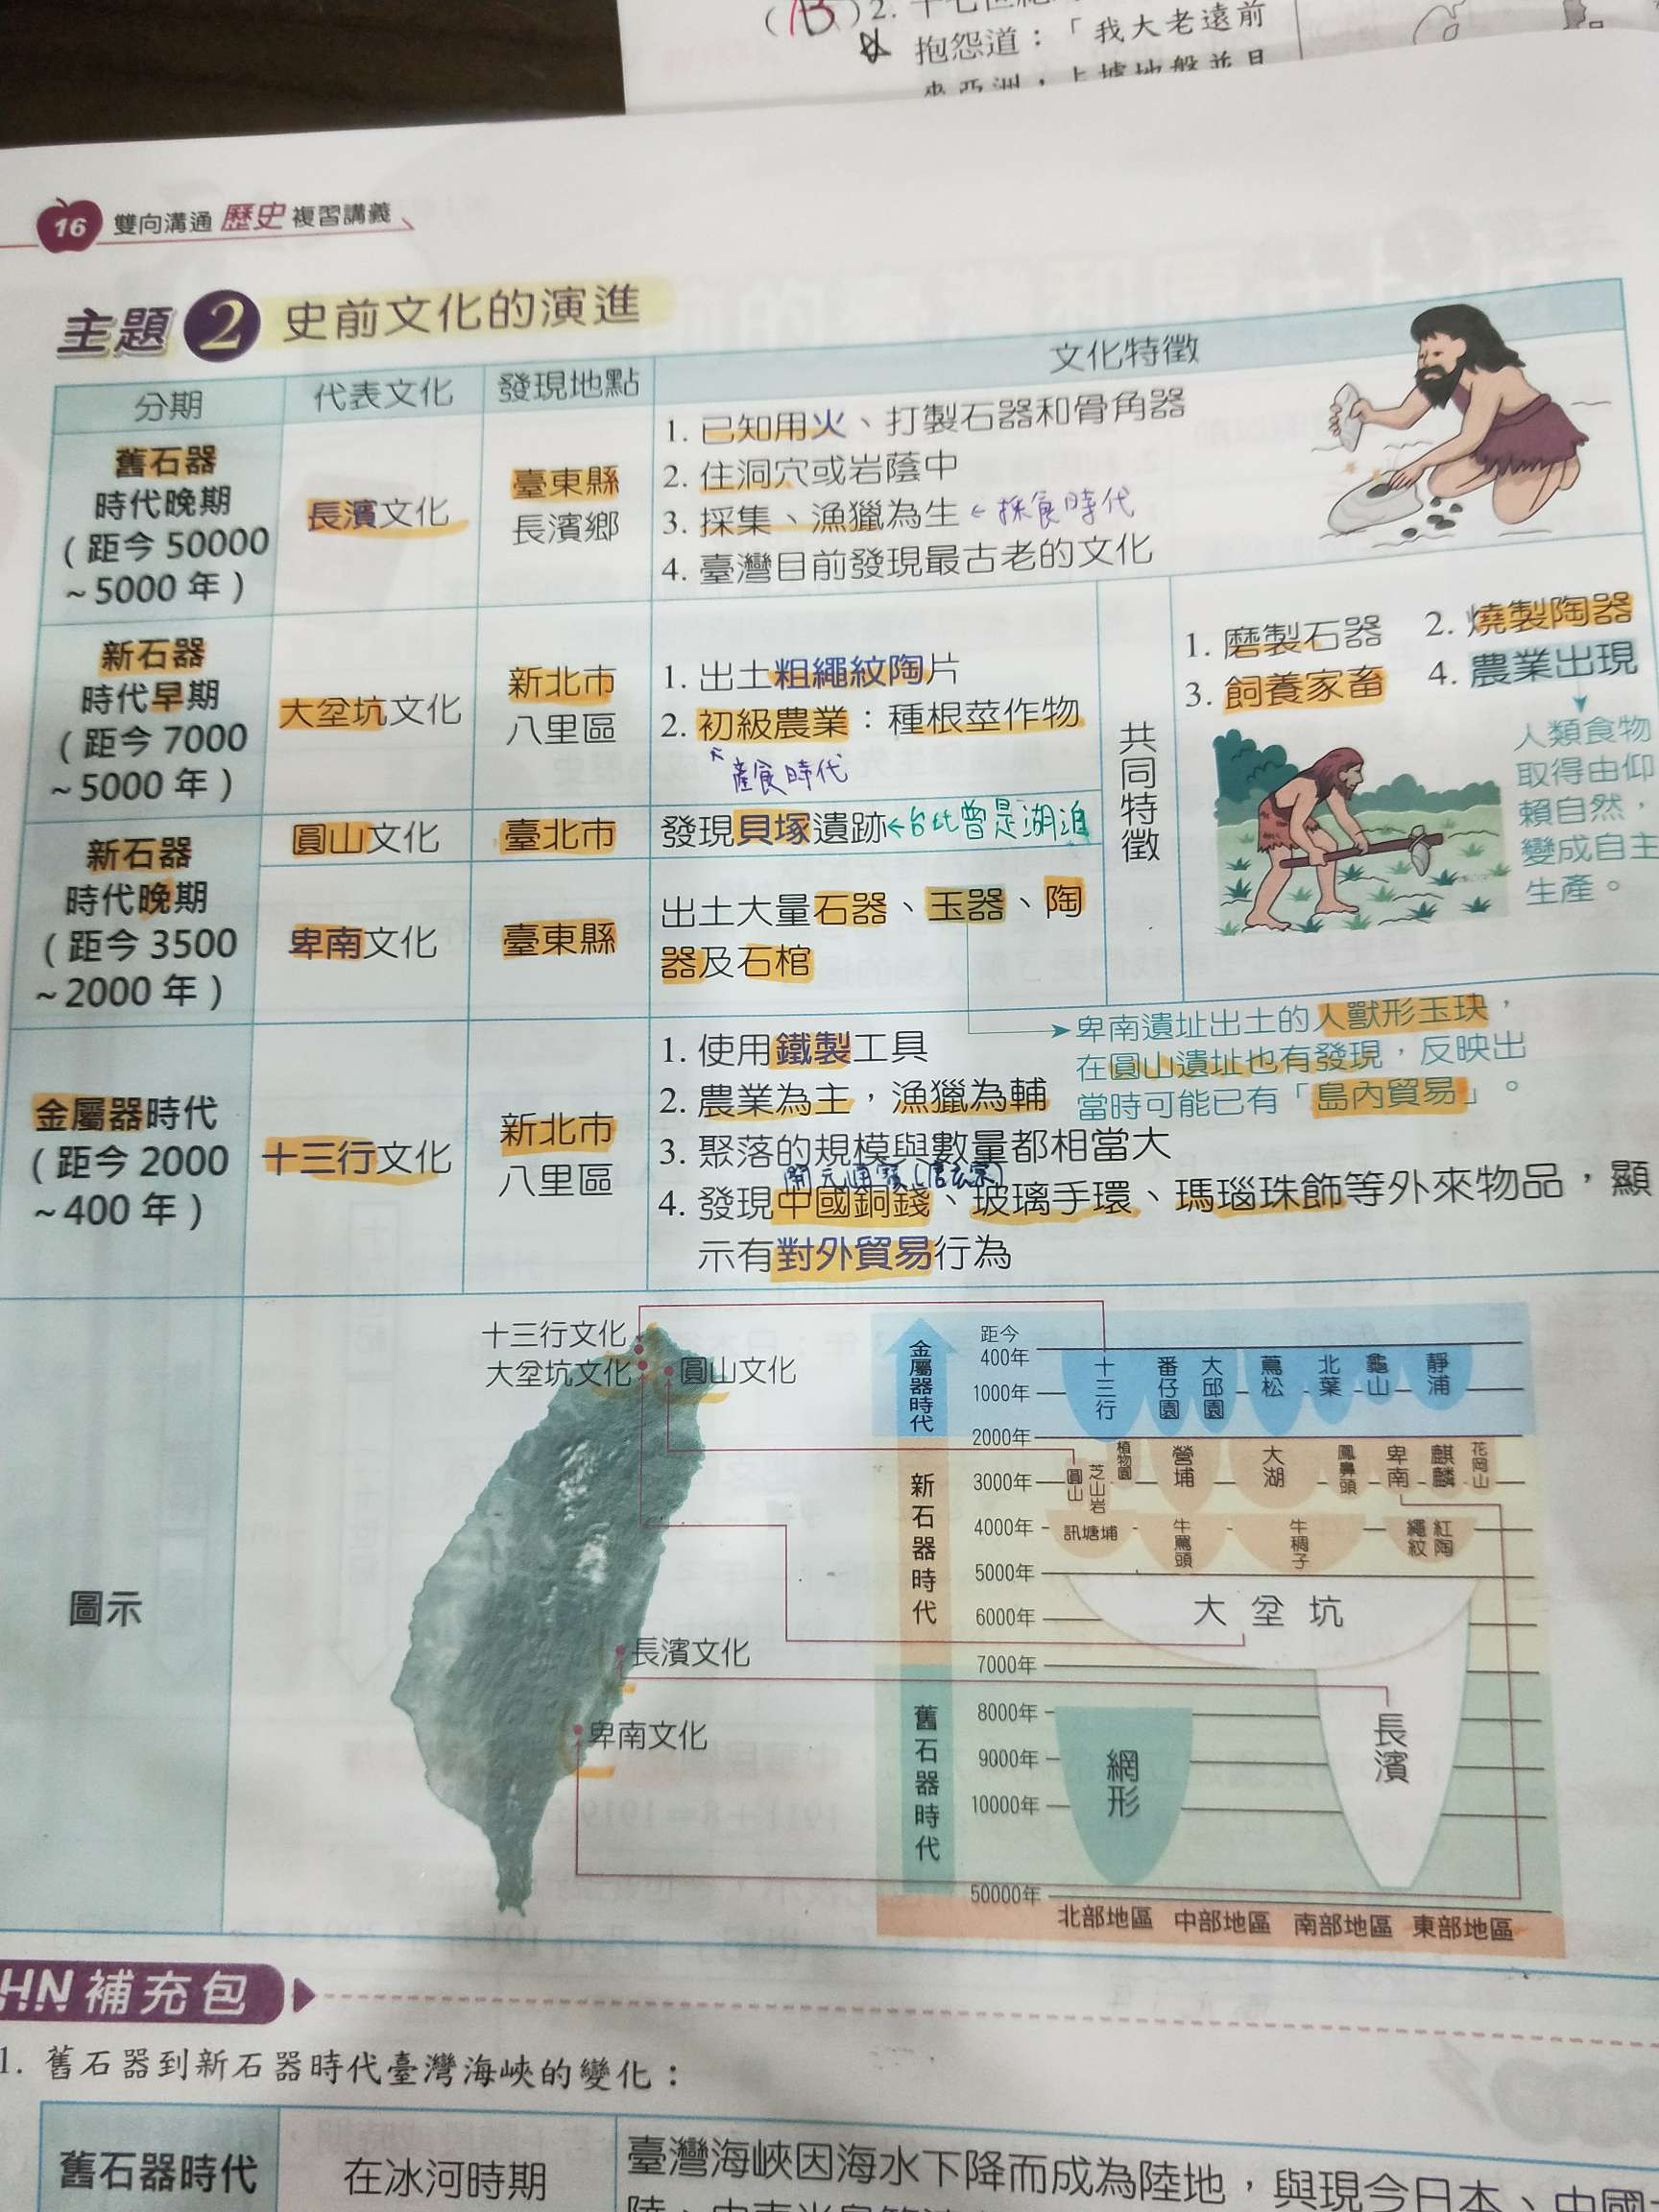 (B)2.
抱怨道：「我大老遠前
16 雙向溝通 歷史 複習講義
主題 2 史前文化的演進
分期 代表文化 發現地點 文化特徵
舊石器
時代晚期
(距今 50000
~5000 年)
長濱文化
臺東縣
長濱鄉
1. 已知用火、打製石器和骨角器
2. 住洞穴或岩蔭中
3. 採集、漁獵為生 ← 採食時代
4. 臺灣目前發現最古老的文化
新石器
時代早期
(距今 7000
~5000 年)
大坌坑文化
新北市
八里區
1. 出土粗繩紋陶片
2. 初級農業：種根莖作物
產食時代
新石器
時代晚期
(距今 3500
~2000 年)
圓山文化
臺北市
發現貝塚遺跡 ← 台北曾是湖泊
卑南文化
臺東縣
出土大量石器、玉器、陶
器及石棺
共同特徵
1. 磨製石器 2. 燒製陶器
3. 飼養家畜 4. 農業出現
人類食物
取得由仰
賴自然，
變成自主
生產。
卑南遺址出土的人獸形玉玦，
在圓山遺址也有發現，反映出
當時可能已有「島內貿易」。
金屬器時代
(距今 2000
~400 年)
十三行文化
新北市
八里區
1. 使用鐵製工具
2. 農業為主，漁獵為輔
3. 聚落的規模與數量都相當大
開元通寶(唐玄宗)
4. 發現中國銅錢、玻璃手環、瑪瑙珠飾等外來物品，顯
示有對外貿易行為
圖示
十三行文化
大坌坑文化
圓山文化
長濱文化
卑南文化
金屬器時代
新石器時代
舊石器時代
距今
400年
1000年
2000年
3000年
4000年
5000年
6000年
7000年
8000年
9000年
10000年
50000年
十三行
番仔園
大邱園
蔦松
北葉
龜山
靜浦
圓山
芝山岩
植物園
營埔
大湖
鳳鼻頭
卑南
麒麟
花岡山
訊塘埔
牛罵頭
牛稠子
繩紋紅陶
大坌坑
網形
長濱
北部地區 中部地區 南部地區 東部地區
HN 補充包
1. 舊石器到新石器時代臺灣海峽的變化：
舊石器時代 在冰河時期 臺灣海峽因海水下降而成為陸地，與現今日本、中國